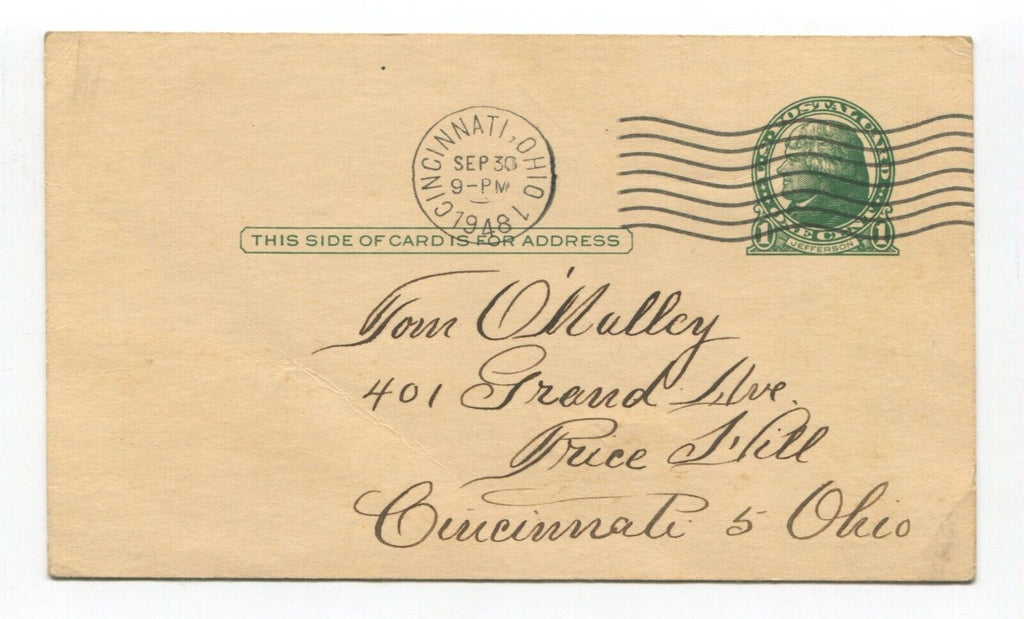 CINCINNATI, OHIO 1
SEP 30
9-PM
1948
U.S. POSTAL CARD
ONE CENT
1 JEFFERSON 1
THIS SIDE OF CARD IS FOR ADDRESS
Tom O'Malley
401 Grand Ave.
Price Hill
Cincinnati 5 Ohio